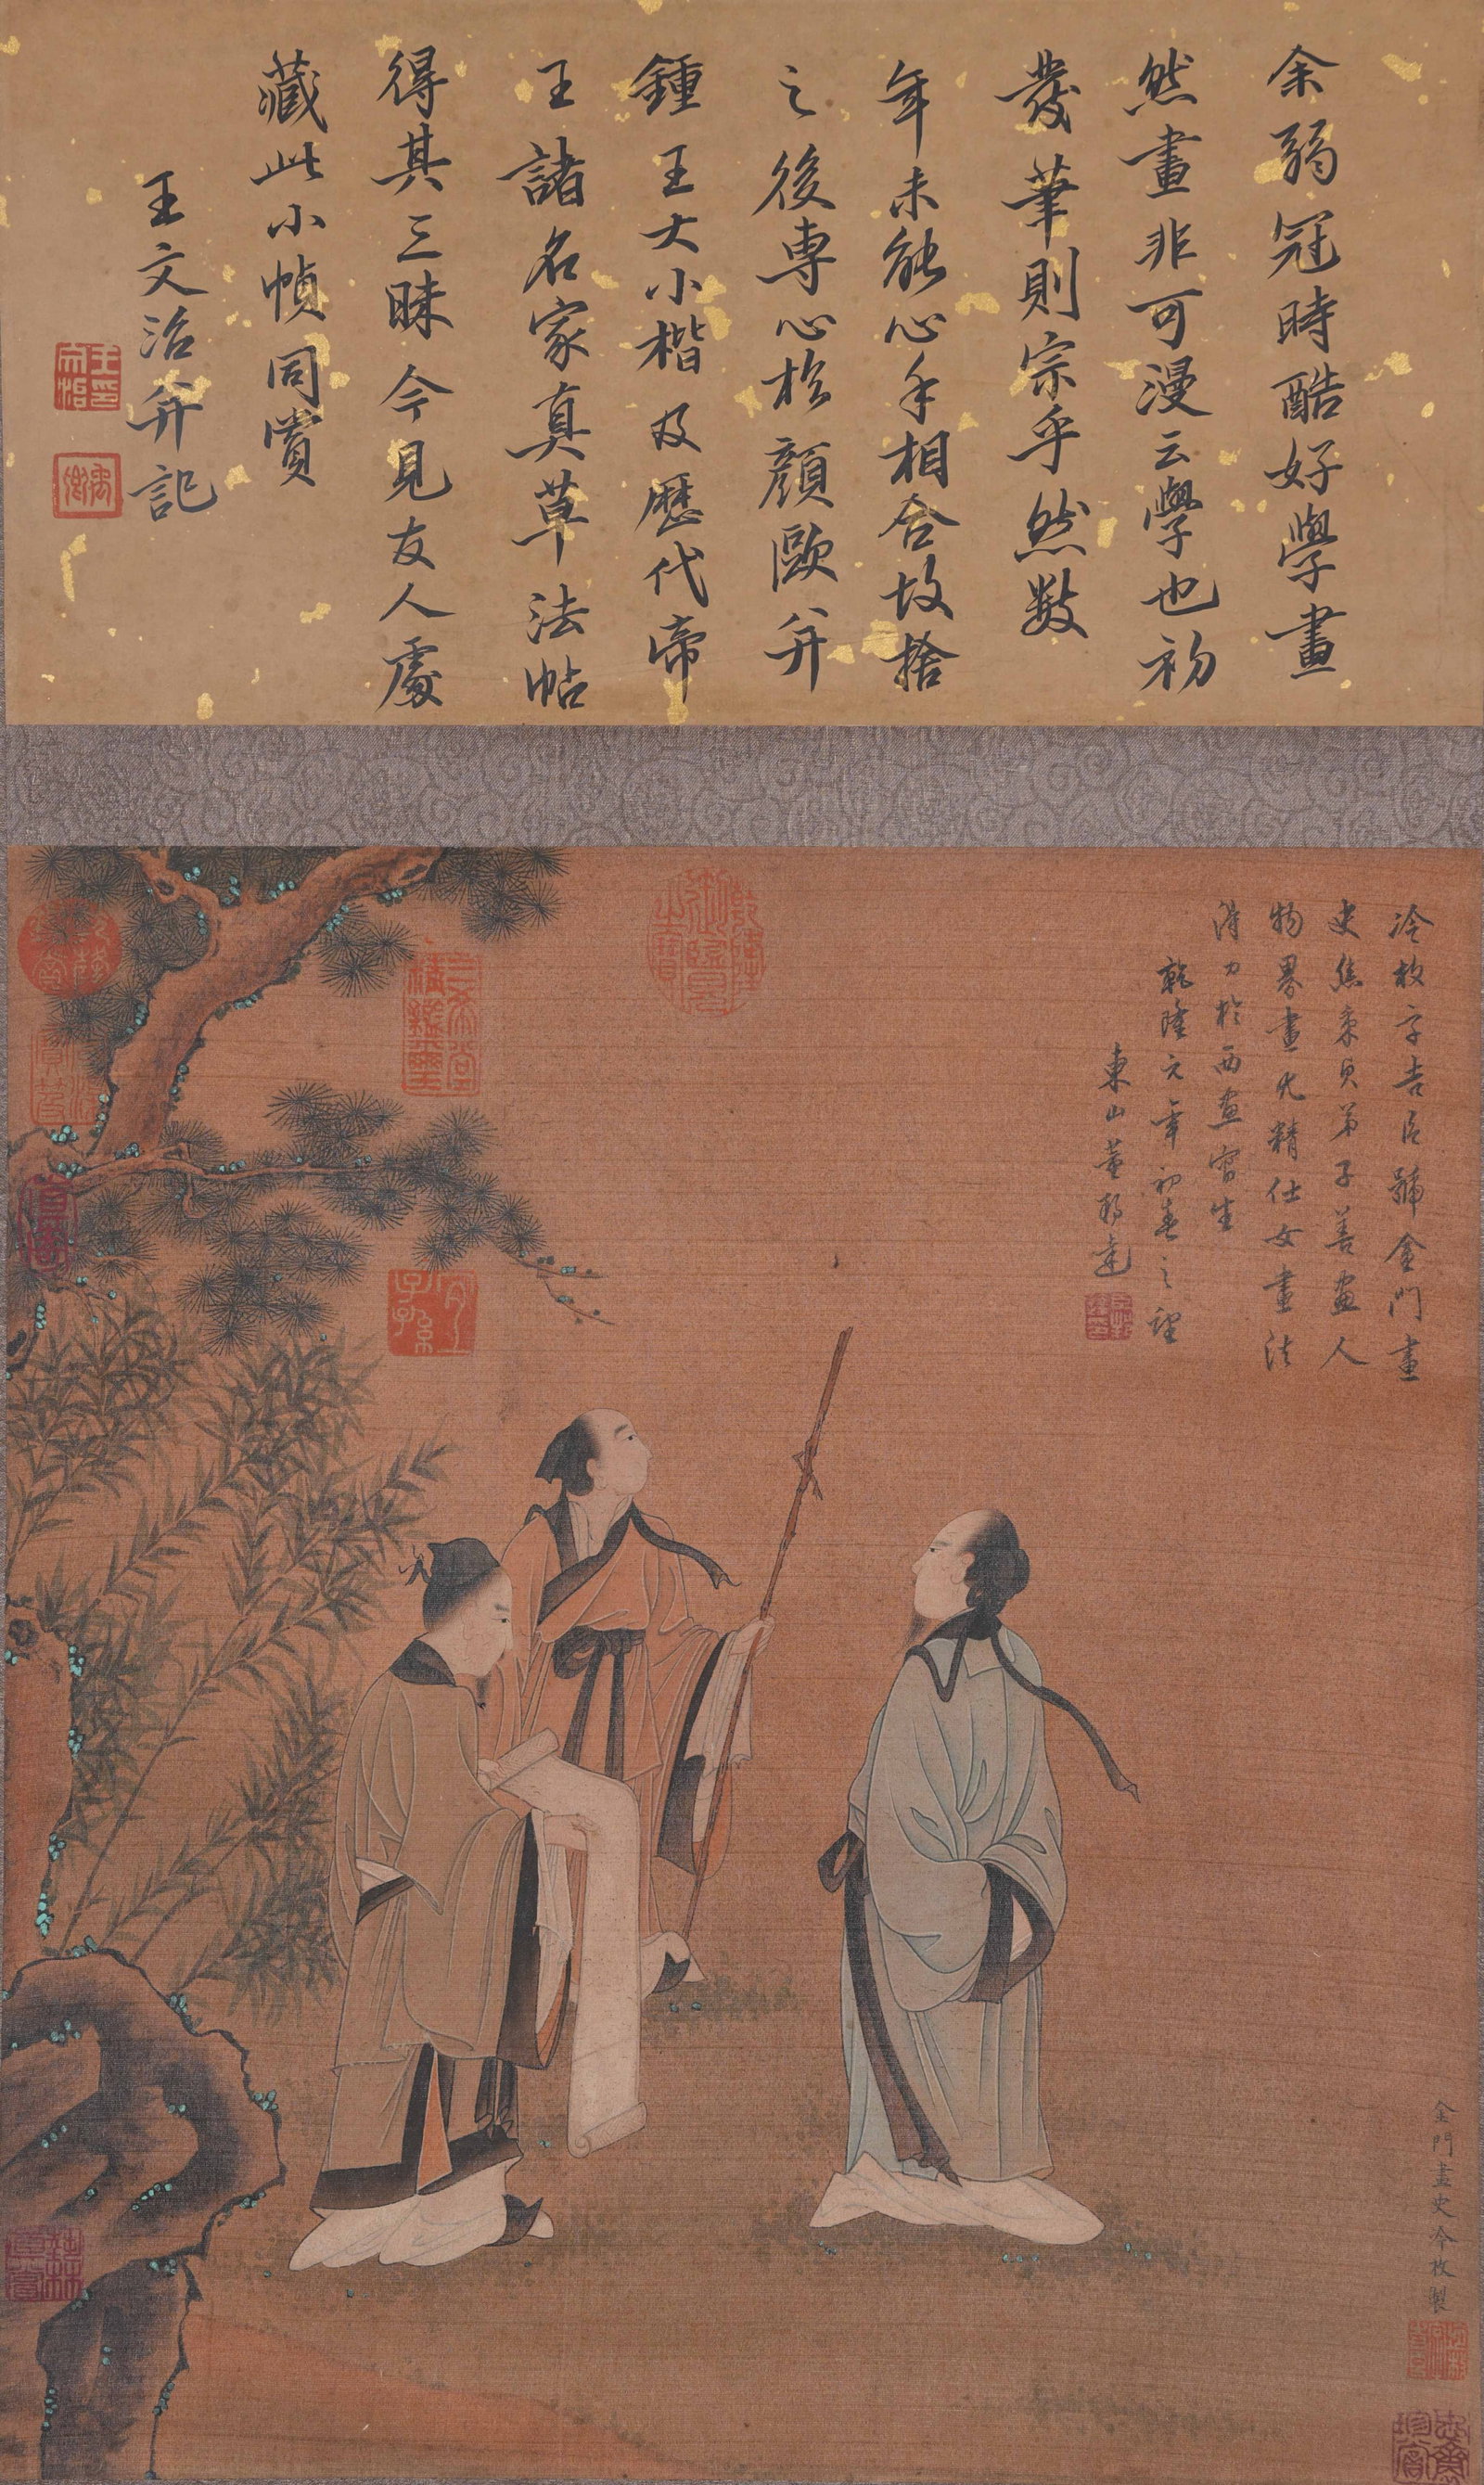 余弱冠時酷好學畫
然畫非可漫云學也初
發筆則宗乎然數
年未能心手相合故捨
之後專心於顏歐并
鍾王大小楷及歷代帝
王諸名家真草法帖
得其三昧今見友人處
藏此小幀同賞
王文治并記
冷枚字吉臣號金門畫
史焦秉貞弟子善畫人
物界畫尤精仕女畫法
得力於西畫寫生
乾隆元年初春之望
東山董邦達
金門畫史冷枚製
乾隆御覽之寶
三希堂精鑑璽
宜子孫